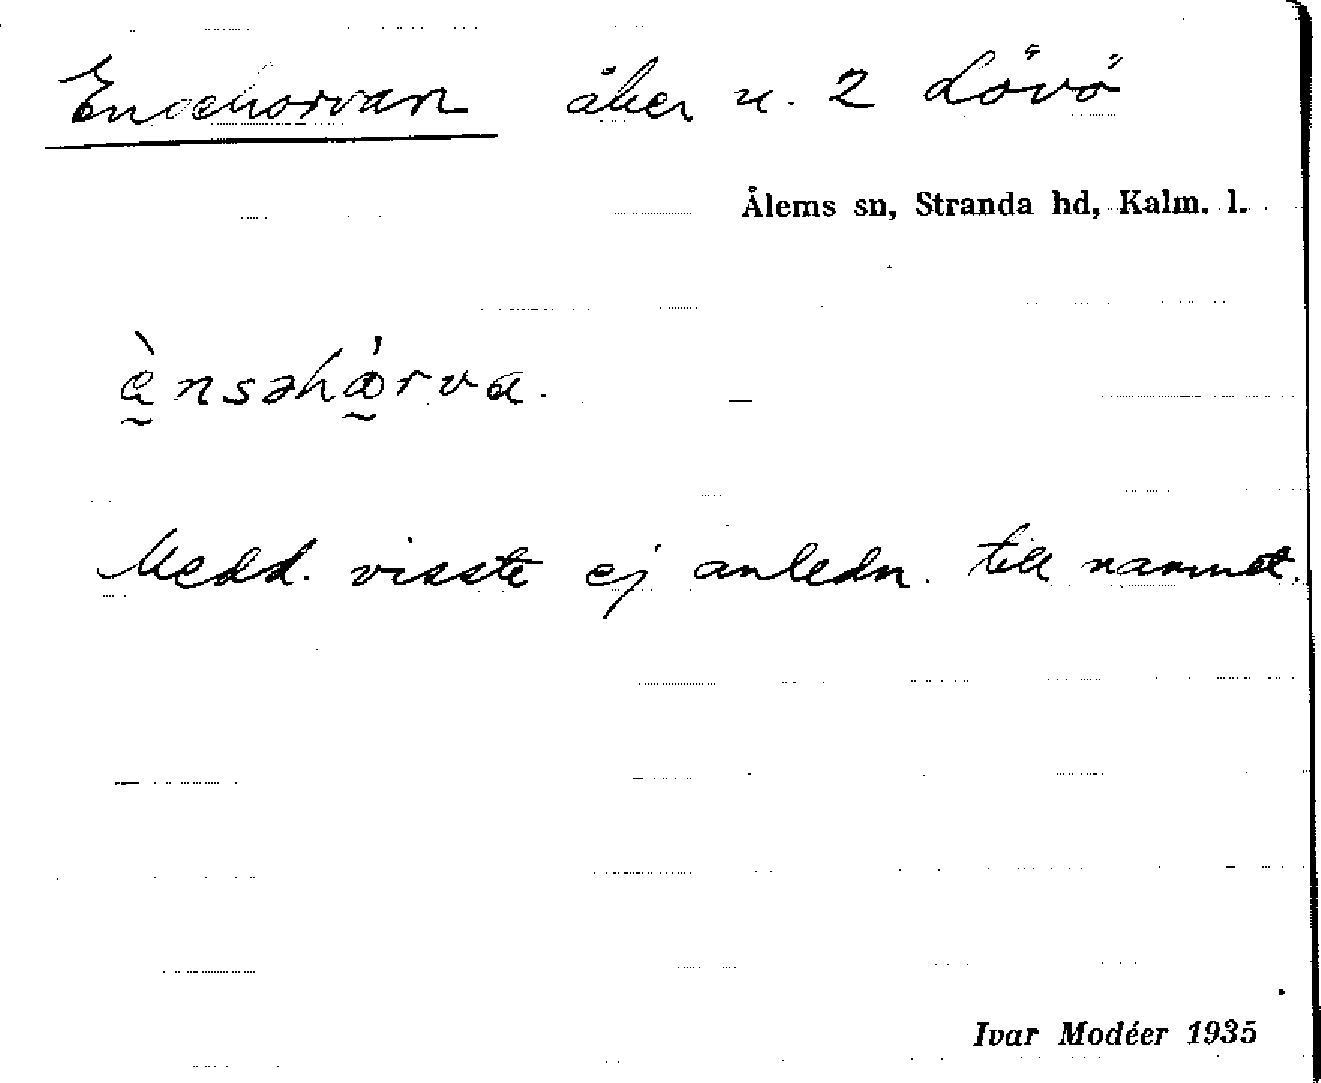 Ensehorvan åker n. 2 Lövö
Ålems sn, Stranda hd, Kalm. l.
ènsəhå̀rva.
Medd. visste ej anledn. till namnet.
Ivar Modéer 1935